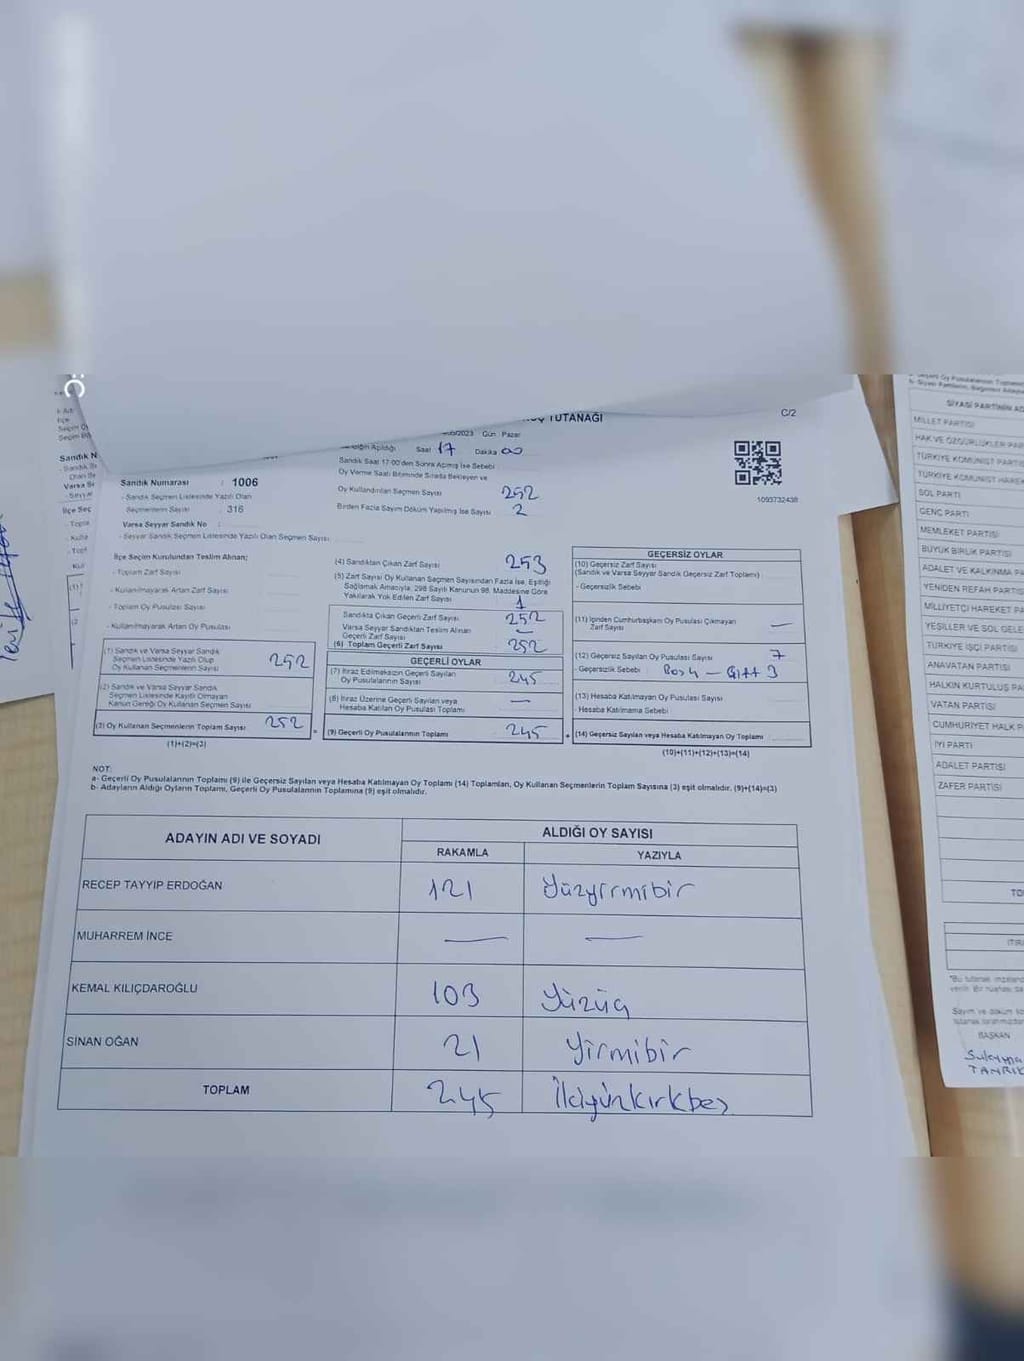 TUTANAĞI
C/2
Gün Pazar
Saat 17 Dakika 00
Sandık Saat 17:00'den Sonra Açılmış İse Sebebi
Oy Verme Saati Bitiminde Sırada Bekleyen ve
Oy Kullandırılan Seçmen Sayısı 252
Birden Fazla Sayım Döküm Yapılmış İse Sayısı 2
1093732438
Sandık Numarası : 1006
- Sandık Seçmen Listesinde Yazılı Olan
Seçmenlerin Sayısı : 316
Varsa Seyyar Sandık No :
- Seyyar Sandık Seçmen Listesinde Yazılı Olan Seçmen Sayısı
İlçe Seçim Kurulundan Teslim Alınan;
- Toplam Zarf Sayısı
- Kullanılmayarak Artan Zarf Sayısı
- Toplam Oy Pusulası Sayısı
- Kullanılmayarak Artan Oy Pusulası
(1) Sandık ve Varsa Seyyar Sandık
Seçmen Listesinde Yazılı Olup
Oy Kullanan Seçmenlerin Sayısı 252
(2) Sandık ve Varsa Seyyar Sandık
Seçmen Listesinde Kayıtlı Olmayan
Kanun Gereği Oy Kullanan Seçmen Sayısı
(3) Oy Kullanan Seçmenlerin Toplam Sayısı 252
(1)+(2)=(3)
(4) Sandıktan Çıkan Zarf Sayısı 253
(5) Zarf Sayısı Oy Kullanan Seçmen Sayısından Fazla İse, Eşitliği
Sağlamak Amacıyla, 298 Sayılı Kanunun 98. Maddesine Göre
Yakılarak Yok Edilen Zarf Sayısı 1
Sandıkta Çıkan Geçerli Zarf Sayısı 252
Varsa Seyyar Sandıktan Teslim Alınan
Geçerli Zarf Sayısı –
(6) Toplam Geçerli Zarf Sayısı 252
GEÇERLİ OYLAR
(7) İtiraz Edilmeksizin Geçerli Sayılan
Oy Pusulalarının Sayısı 245
(8) İtiraz Üzerine Geçerli Sayılan veya
Hesaba Katılan Oy Pusulası Toplamı —
(9) Geçerli Oy Pusulalarının Toplamı 245
GEÇERSİZ OYLAR
(10) Geçersiz Zarf Sayısı
(Sandık ve Varsa Seyyar Sandık Geçersiz Zarf Toplamı)
- Geçersizlik Sebebi
(11) İçinden Cumhurbaşkanı Oy Pusulası Çıkmayan
Zarf Sayısı —
(12) Geçersiz Sayılan Oy Pusulası Sayısı 7
- Geçersizlik Sebebi Boş 4 – Çift 3
(13) Hesaba Katılmayan Oy Pusulası Sayısı
- Hesaba Katılmama Sebebi
(14) Geçersiz Sayılan veya Hesaba Katılmayan Oy Toplamı
(10)+(11)+(12)+(13)=(14)
NOT:
a- Geçerli Oy Pusulalarının Toplamı (9) ile Geçersiz Sayılan veya Hesaba Katılmayan Oy Toplamı (14) Toplamları, Oy Kullanan Seçmenlerin Toplam Sayısına (3) eşit olmalıdır. (9)+(14)=(3)
b- Adayların Aldığı Oyların Toplamı, Geçerli Oy Pusulalarının Toplamına (9) eşit olmalıdır.
ADAYIN ADI VE SOYADI
ALDIĞI OY SAYISI
RAKAMLA YAZIYLA
RECEP TAYYIP ERDOĞAN 121 Yüzyirmibir
MUHARREM İNCE — —
KEMAL KILIÇDAROĞLU 103 Yüzüç
SİNAN OĞAN 21 Yirmibir
TOPLAM 245 İkiyüzkırkbeş
SİYASİ PARTİNİN
MİLLET PARTİSİ
HAK VE ÖZGÜRLÜKLER
TÜRKİYE KOMÜNİST
TÜRKİYE KOMÜNİST
SOL PARTİ
GENÇ PARTİ
MEMLEKET PARTİSİ
BÜYÜK BİRLİK PARTİSİ
ADALET VE KALKINMA
YENİDEN REFAH
MİLLİYETÇİ HAREKET
YEŞİLLER VE SOL
TÜRKİYE İŞÇİ PARTİSİ
ANAVATAN PARTİSİ
HALKIN KURTULUŞ
VATAN PARTİSİ
CUMHURİYET HALK
İYİ PARTİ
ADALET PARTİSİ
ZAFER PARTİSİ
BAŞKAN